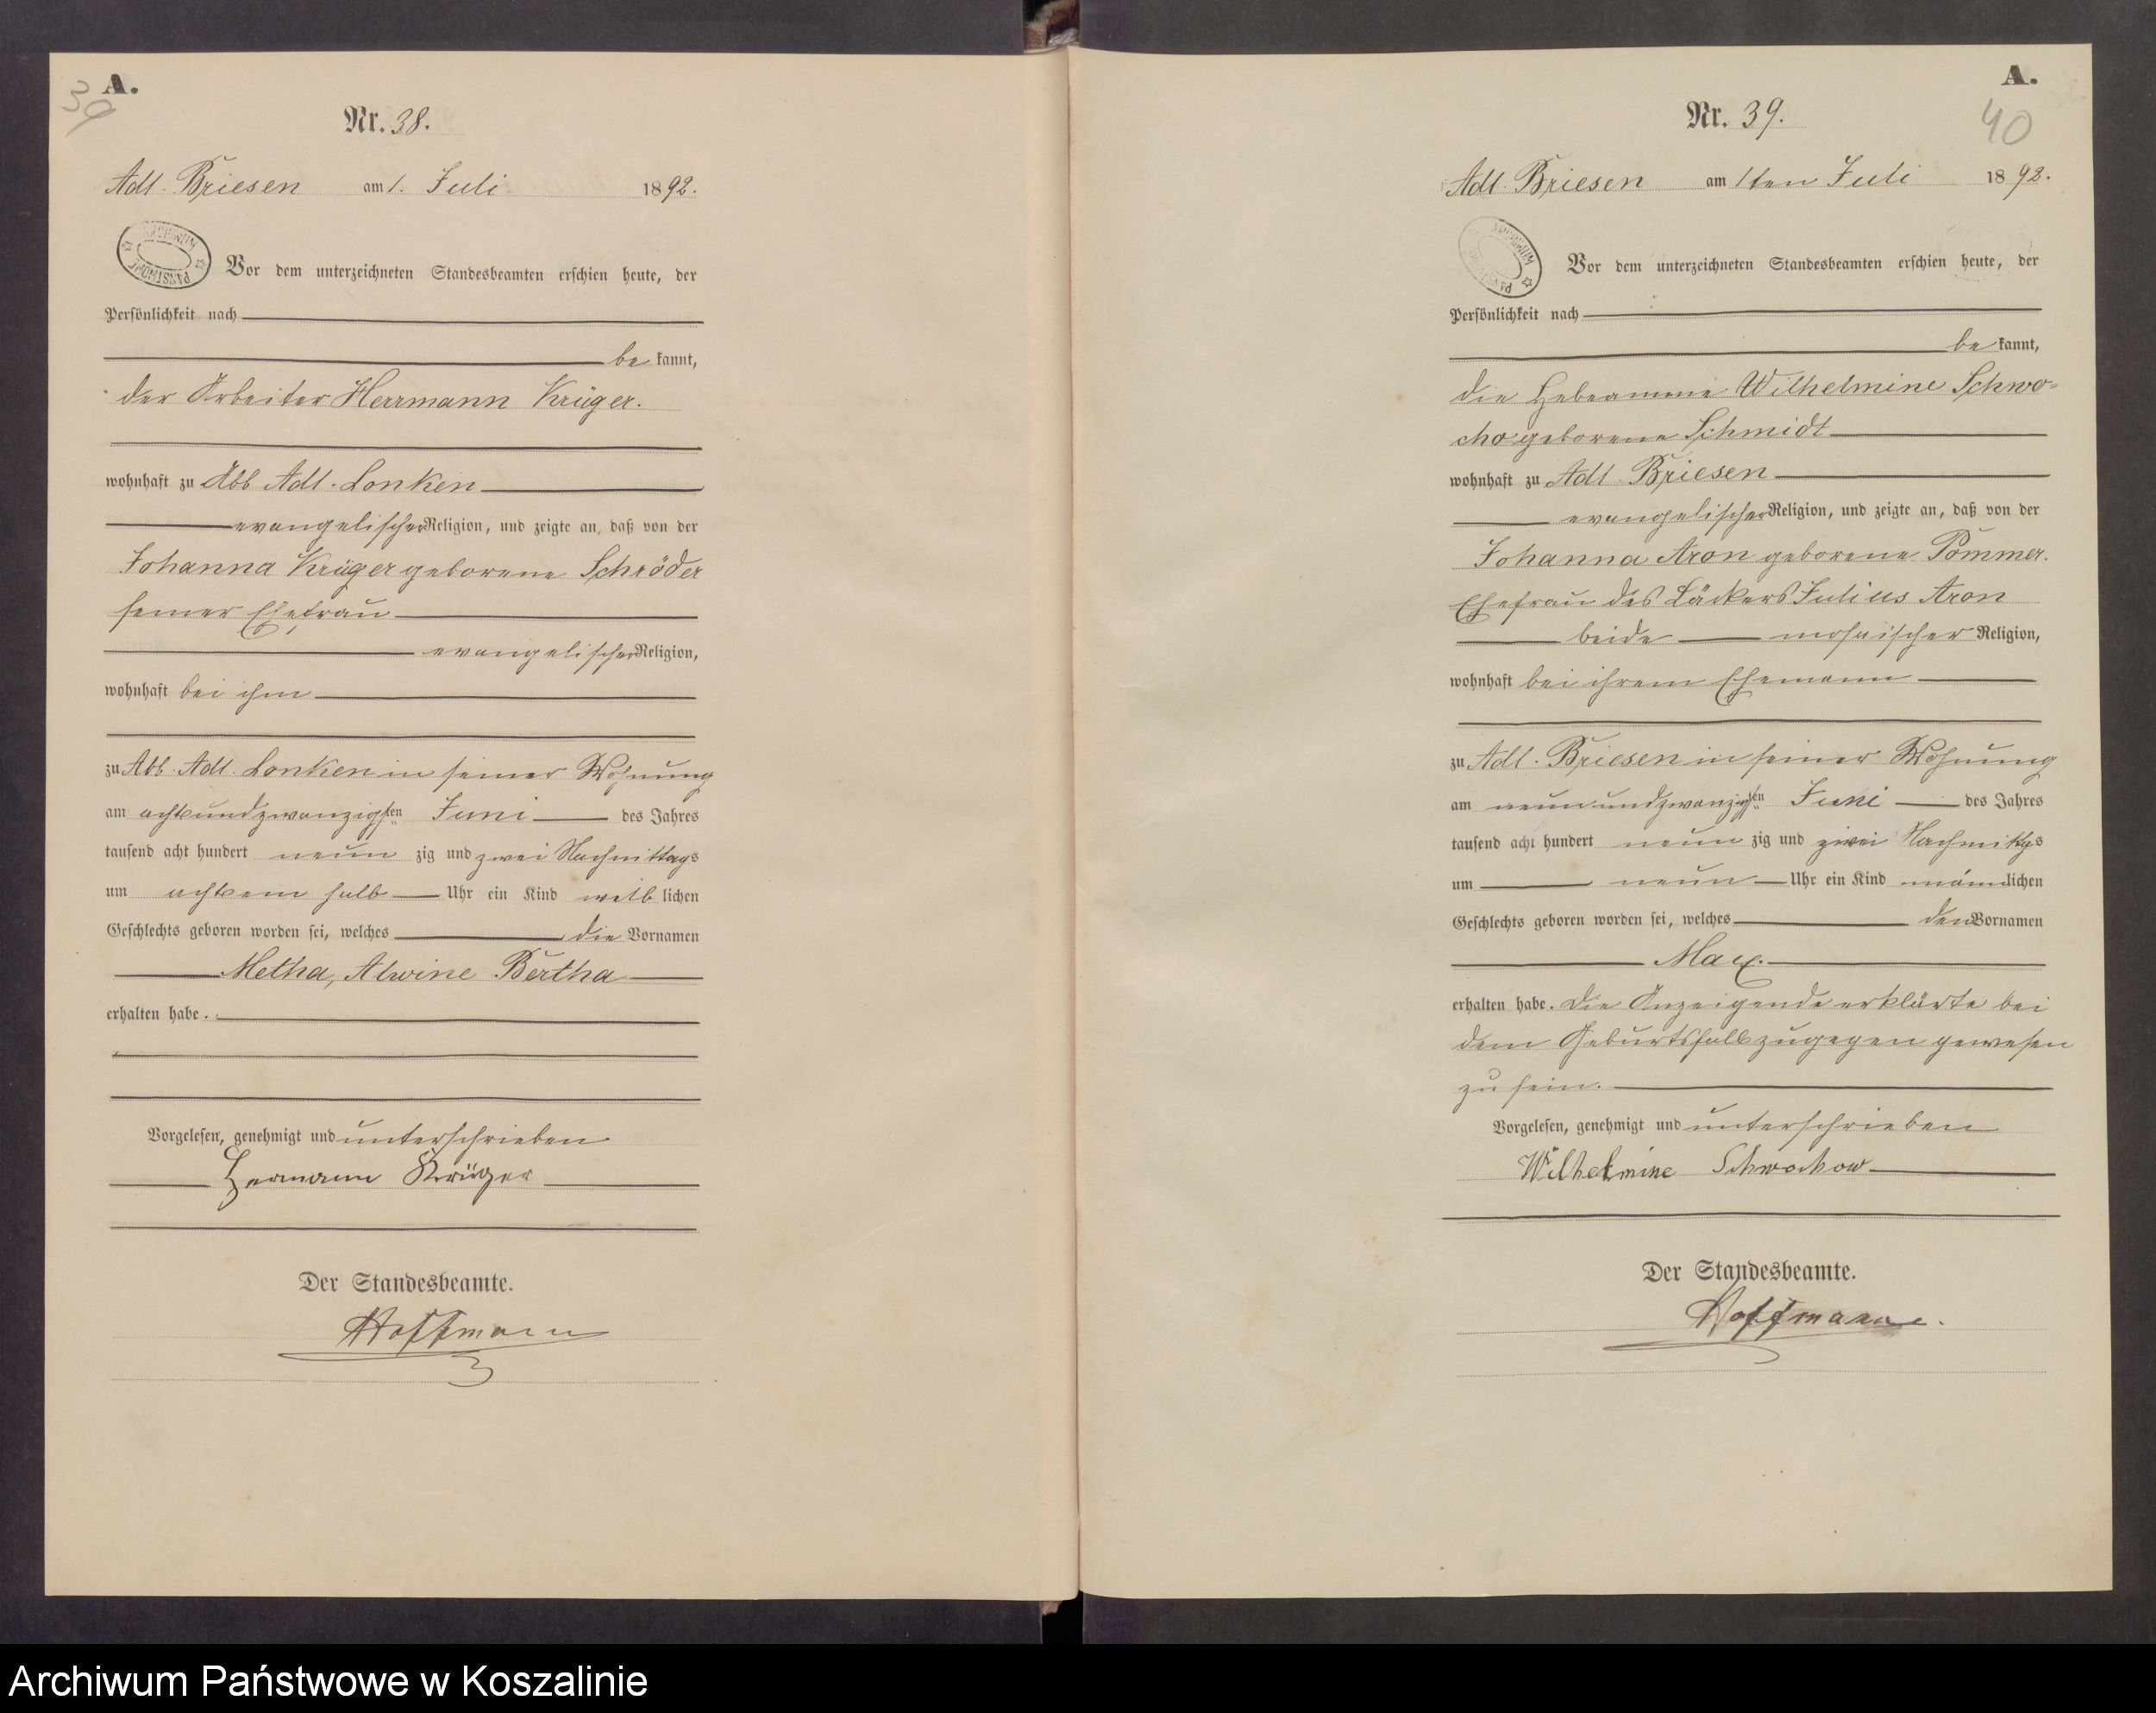 39
A.
Nr. 38.
Adl. Briesen am 1. Juli 1892.
ARCHIWUM PAŃSTWOWE
Vor dem unterzeichneten Standesbeamten erschien heute, der
Persönlichkeit nach
be kannt,
der Arbeiter Herrmann Krüger.
wohnhaft zu Abb Adl. Lonken
evangelischer Religion, und zeigte an, daß von der
Johanna Krüger geborene Schröder
seiner Ehefrau
evangelischer Religion,
wohnhaft bei ihm
zu Abb. Adl. Lonken in seiner Wohnung
am achtundzwanzigsten Juni des Jahres
tausend acht hundert neun zig und zwei Nachmittags
um achtein halb Uhr ein Kind weib lichen
Geschlechts geboren worden sei, welches die Vornamen
Metha, Alwine Bertha
erhalten habe.
Vorgelesen, genehmigt und unterschrieben
Hermann Krüger
Der Standesbeamte.
Hoffmann
A.
40
Nr. 39.
Adl. Briesen am 1ten Juli 1892.
ARCHIWUM
Vor dem unterzeichneten Standesbeamten erschien heute, der
Persönlichkeit nach
be kannt,
die Hebeamme Wilhelmine Schwo-
cho geborene Schmidt
wohnhaft zu Adl. Briesen
evangelischer Religion, und zeigte an, daß von der
Johanna Aron geborene Pommer.
Ehefrau des Bäckers Julius Aron
beide mosaischer Religion,
wohnhaft bei ihrem Ehemann
zu Adl. Briesen in seiner Wohnung
am neunundzwanzigsten Juni des Jahres
tausend acht hundert neun zig und zwei Nachmittgs
um neun Uhr ein Kind männlichen
Geschlechts geboren worden sei, welches den Vornamen
Max.
erhalten habe. Die Anzeigende erklärte bei
dem Geburtsfall zugegen gewesen
zu sein.
Vorgelesen, genehmigt und unterschrieben
Wilhelmine Schwochow
Der Standesbeamte.
Hoffmann.
Archiwum Państwowe w Koszalinie